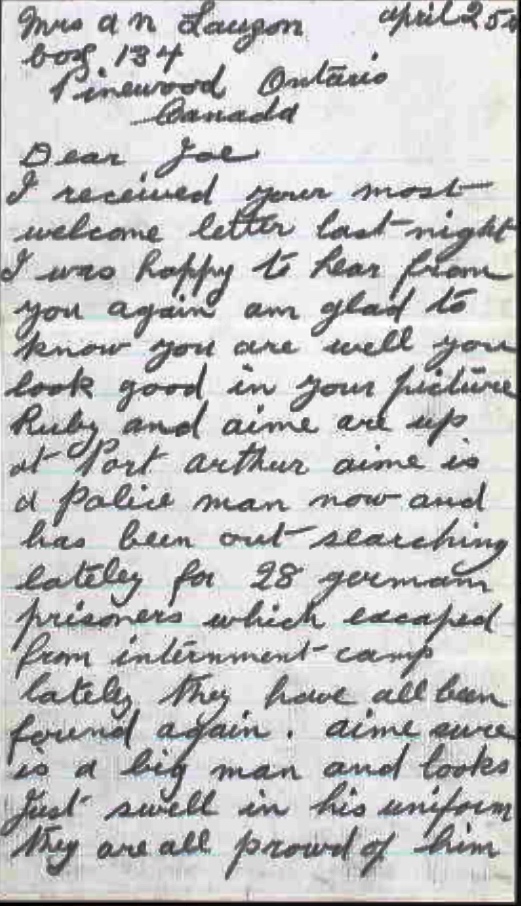 Mrs a n Lauzon april 25
box 134
Pinewood Ontario
Canada
Dear Joe
I received your most
welcome letter last night
I was happy to hear from
you again am glad to
know you are well you
look good in your picture
Ruby and aime are up
at Port arthur aime is
a police man now and
has been out searching
lateley for 28 german
prisoners which excaped
from internment camp
lately they have all been
found again. aime sure
is a big man and looks
Just swell in his uniform
they are all prowd of him